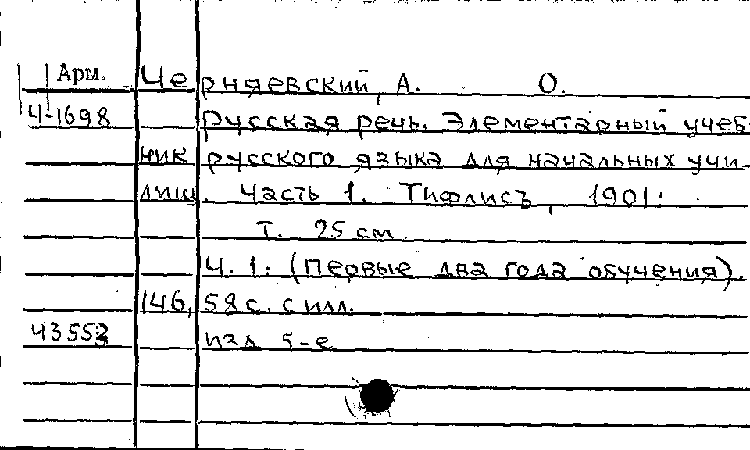 Арм. Черняевский, А. О.
Ч-1698 Русская речь. Элементарный учеб-
ник русского языка для начальных учи-
лищ. Часть 1. Тифлисъ, 1901:
т. 25 см.
Ч. 1: (Первые два года обучения).
146, 58 с. с илл.
43553 изд 5-е